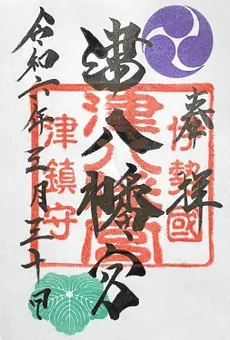 奉拝
伊勢國
津八幡宮
津八幡宮
津鎮守
令和六年三月三十日